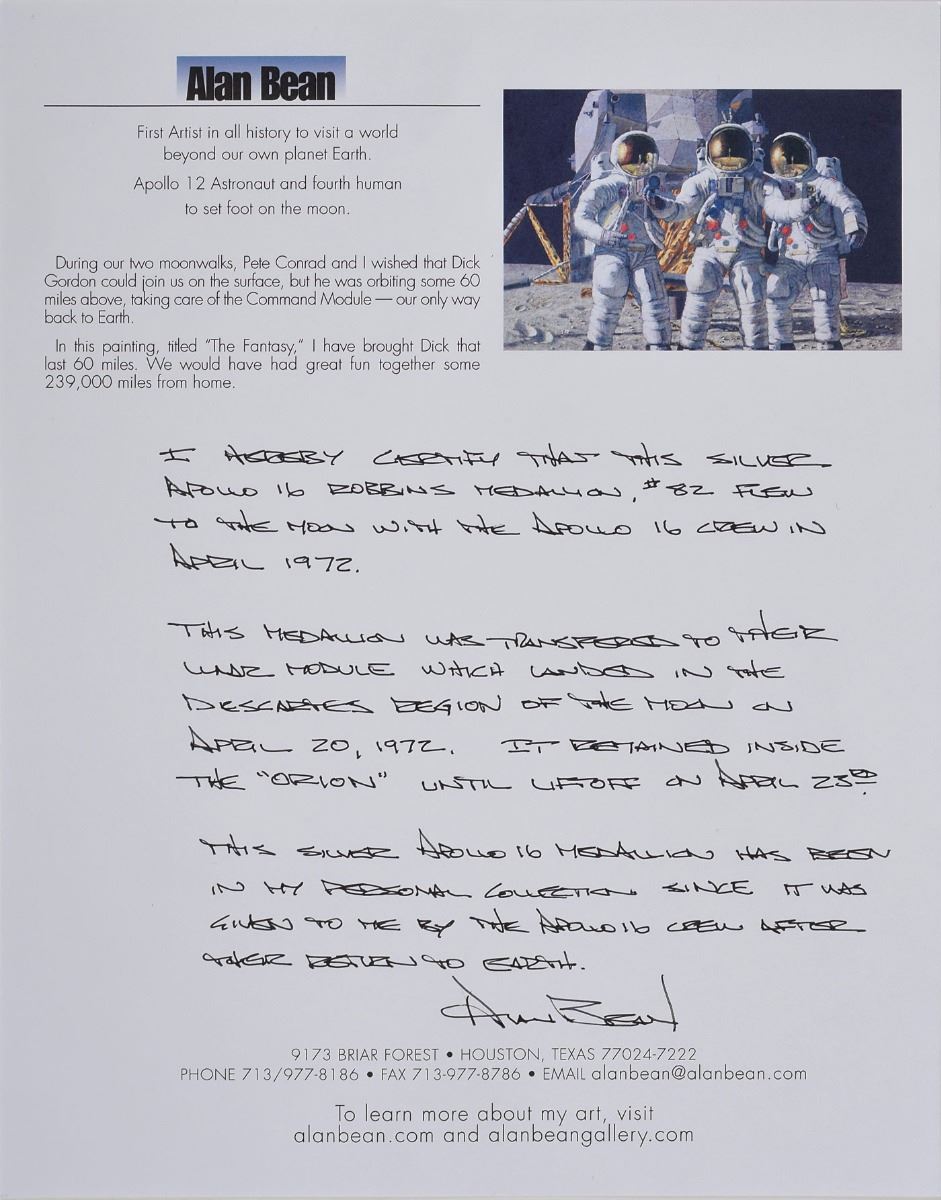 Alan Bean
First Artist in all history to visit a world
beyond our own planet Earth.
Apollo 12 Astronaut and fourth human
to set foot on the moon.
During our two moonwalks, Pete Conrad and I wished that Dick
Gordon could join us on the surface, but he was orbiting some 60
miles above, taking care of the Command Module — our only way
back to Earth.
In this painting, titled "The Fantasy," I have brought Dick that
last 60 miles. We would have had great fun together some
239,000 miles from home.
I HEREBY CERTIFY THAT THIS SILVER
APOLLO 16 ROBBINS MEDALLION, #82 FLEW
TO THE MOON WITH THE APOLLO 16 CREW IN
APRIL 1972.
THIS MEDALLION WAS TRANSFERED TO THEIR
LUNAR MODULE WHICH LANDED IN THE
DESCARTES REGION OF THE MOON ON
APRIL 20, 1972. IT RETAINED INSIDE
THE "ORION" UNTIL LIFTOFF ON APRIL 23RD.
THIS SILVER APOLLO 16 MEDALLION HAS BEEN
IN MY PERSONAL COLLECTION SINCE IT WAS
GIVEN TO ME BY THE APOLLO 16 CREW AFTER
THEIR RETURN TO EARTH.
ALAN BEAN
9173 BRIAR FOREST • HOUSTON, TEXAS 77024-7222
PHONE 713/977-8186 • FAX 713-977-8786 • EMAIL alanbean@alanbean.com
To learn more about my art, visit
alanbean.com and alanbeangallery.com